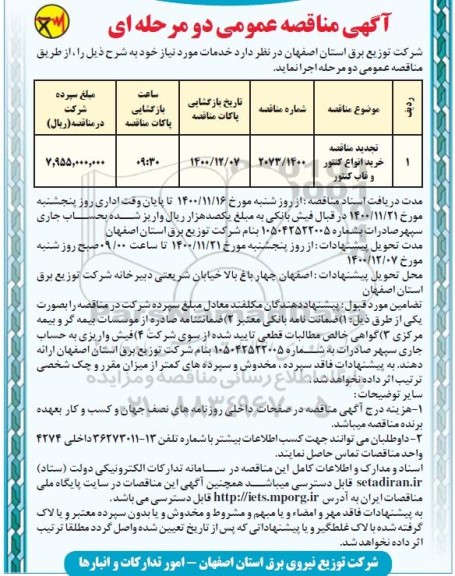 آگهی مناقصه عمومی دو مرحله ای
شرکت توزیع برق استان اصفهان در نظر دارد خدمات مورد نیاز خود به شرح ذیل را ، از طریق
مناقصه عمومی دو مرحله اجرا نماید.
ردیف
موضوع مناقصه
شماره مناقصه
تاریخ بازگشایی پاکات مناقصه
ساعت بازگشایی پاکات مناقصه
مبلغ سپرده شرکت درمناقصه(ریال)
۱
تجدید مناقصه خرید انواع کنتور و قاب کنتور
۲۰۷۳/۱۴۰۰
۱۴۰۰/۱۲/۰۷
۰۹:۳۰
۷,۹۵۵,۰۰۰,۰۰۰
مدت دریافت اسناد مناقصه : از روز شنبه مورخ ۱۴۰۰/۱۱/۱۶ تا پایان وقت اداری روز پنجشنبه
مورخ ۱۴۰۰/۱۱/۲۱ در قبال فیش بانکی به مبلغ یکصدهزار ریال واریز شده بحساب جاری
سپهرصادرات بشماره ۰۱۰۵۰۴۲۵۲۲۰۰۵ بنام شرکت توزیع برق استان اصفهان
مدت تحویل پیشنهادات : از روز پنجشنبه مورخ ۱۴۰۰/۱۱/۲۱ تا ساعت ۰۹/۰۰ صبح روز شنبه
مورخ ۱۴۰۰/۱۲/۰۷
محل تحویل پیشنهادات : اصفهان چهار باغ بالا خیابان شریعتی دبیرخانه شرکت توزیع برق
استان اصفهان
تضامین مورد قبول: پیشنهاددهندگان مکلفند معادل مبلغ سپرده شرکت در مناقصه را بصورت
یکی از طرق ذیل: ۱)ضمانت نامه بانکی معتبر ۲)ضمانتنامه صادره از موسسات بیمه گر و بیمه
مرکزی ۳)گواهی خالص مطالبات قطعی تایید شده از سوی شرکت ۴)فیش واریزی به حساب
جاری سپهر صادرات به شماره ۰۱۰۵۰۴۲۵۲۲۰۰۵ بنام شرکت توزیع برق استان اصفهان ارائه
دهند. به پیشنهادات فاقد سپرده ، مخدوش و سپرده های کمتر از میزان مقرر و چک شخصی
ترتیب اثر داده نخواهد شد.
سایر توضیحات :
۱-هزینه درج آگهی مناقصه در صفحات داخلی روزنامه های نصف جهان و کسب و کار بعهده
برنده مناقصه میباشد.
۲-داوطلبان می توانند جهت کسب اطلاعات بیشتر با شماره تلفن ۱۳-۳۶۲۷۳۰۱۱ داخلی ۴۲۷۴
واحد مناقصات تماس حاصل نمایند.
اسناد و مدارک و اطلاعات کامل این مناقصه در سامانه تدارکات الکترونیکی دولت (ستاد)
setadiran.ir قابل دسترسی میباشد همچنین آگهی این مناقصات در سایت پایگاه ملی
مناقصات ایران به آدرس http://iets.mporg.ir قابل دسترسی می باشد.
به پیشنهادات فاقد مهر و امضاء و یا مبهم و مشروط و مخدوش و یا بدون سپرده معتبر و یا لاک
گرفته شده با لاک غلطگیر و یا پیشنهاداتی که پس از تاریخ تعیین شده واصل گردد مطلقا ترتیب
اثر داده نخواهد شد.
شرکت توزیع نیروی برق استان اصفهان – امور تدارکات و انبارها